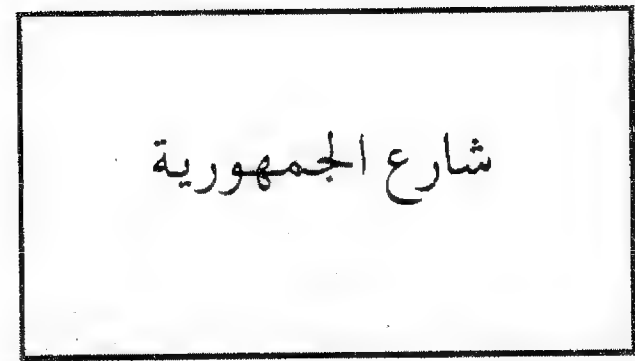 شارع الجمهورية